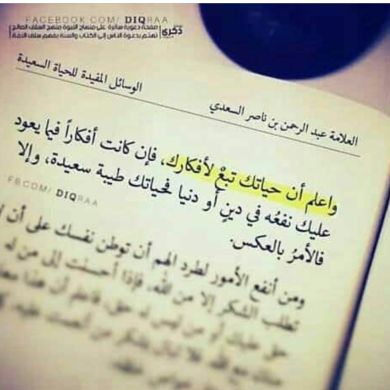 FACEBOOK.COM/ DIQRAA
ذكرى
صفحة دعوية سائرة على منهاج النبوة منهج السلف الصالح
تهتم بدعوة الناس إلى الكتاب والسنة بفهم سلف الأمة
الوسائل المفيدة للحياة السعيدة
العلامة عبد الرحمن بن ناصر السعدي
واعلم أن حياتك تبعٌ لأفكارك، فإن كانت أفكاراً فيما يعود
عليك نفعُه في دينٍ أو دنيا فحياتك طيبة سعيدة، وإلا
فالأمرُ بالعكس.
FB.COM/ DIQRAA
ومن أنفع الأمور لطرد الهم أن توطن نفسك على أن لا
تطلب الشكر إلا من الله، فإذا أحسنت إلى من له
حق عليك أو من ليس له حق، فاعلم أن هذا